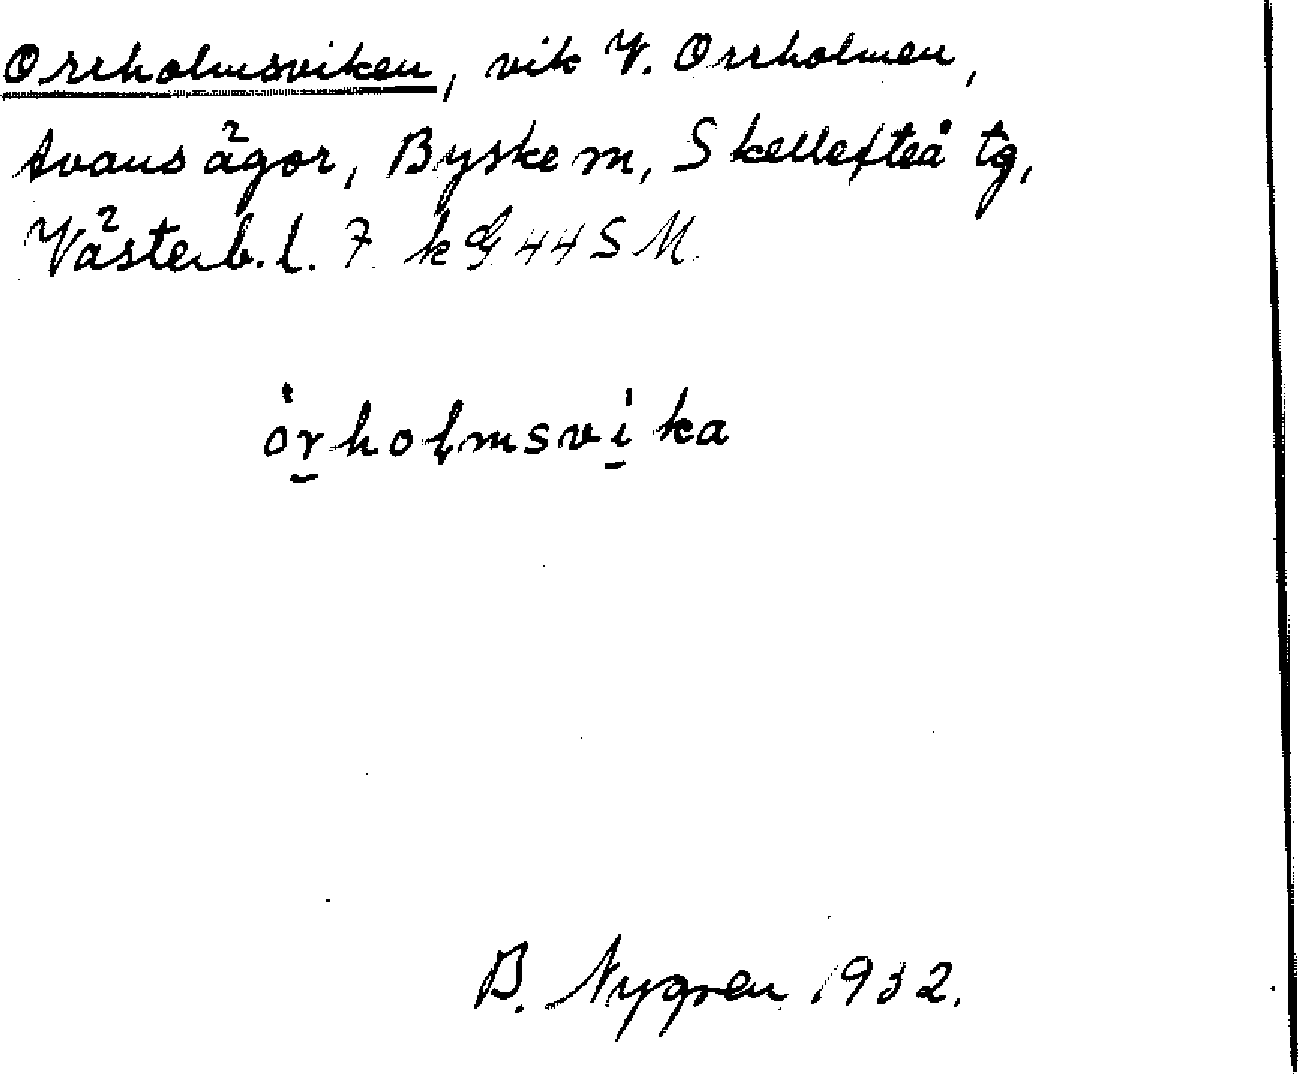 Orrholmsviken, vik V. Orrholmen,
Avans ägor, Byske m, Skellefteå tg,
Västerb. l. 7 kg 44 S M.
órholmsvika
B. Nygren 1932.